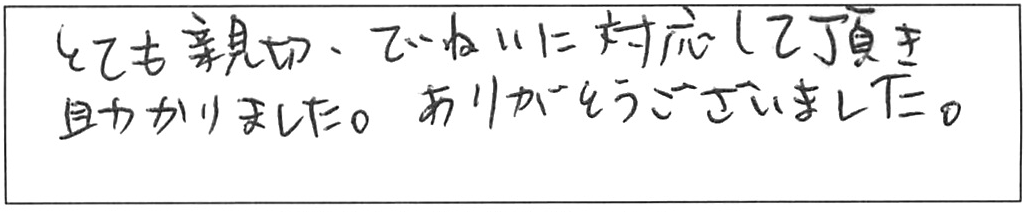 とても親切、ていねいに対応して頂き
助かりました。ありがとうございました。